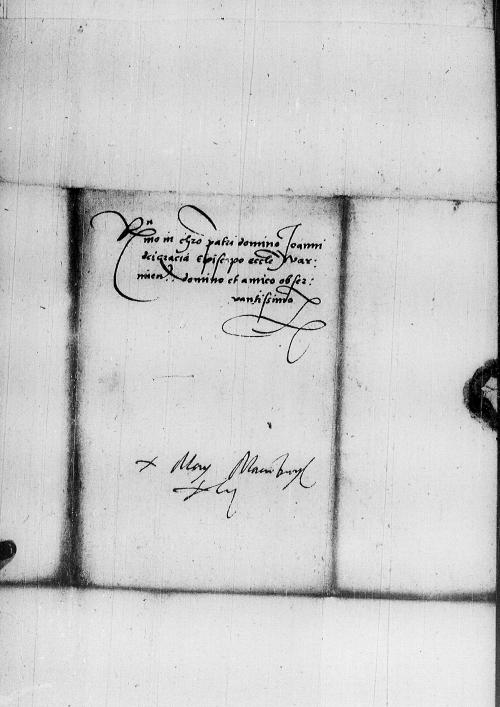 Rmo in chro patri domino Joanni
dei gracia Episcopo eccle War:
mien: domino et amico obser:
vantissimo
+ May Marienburg